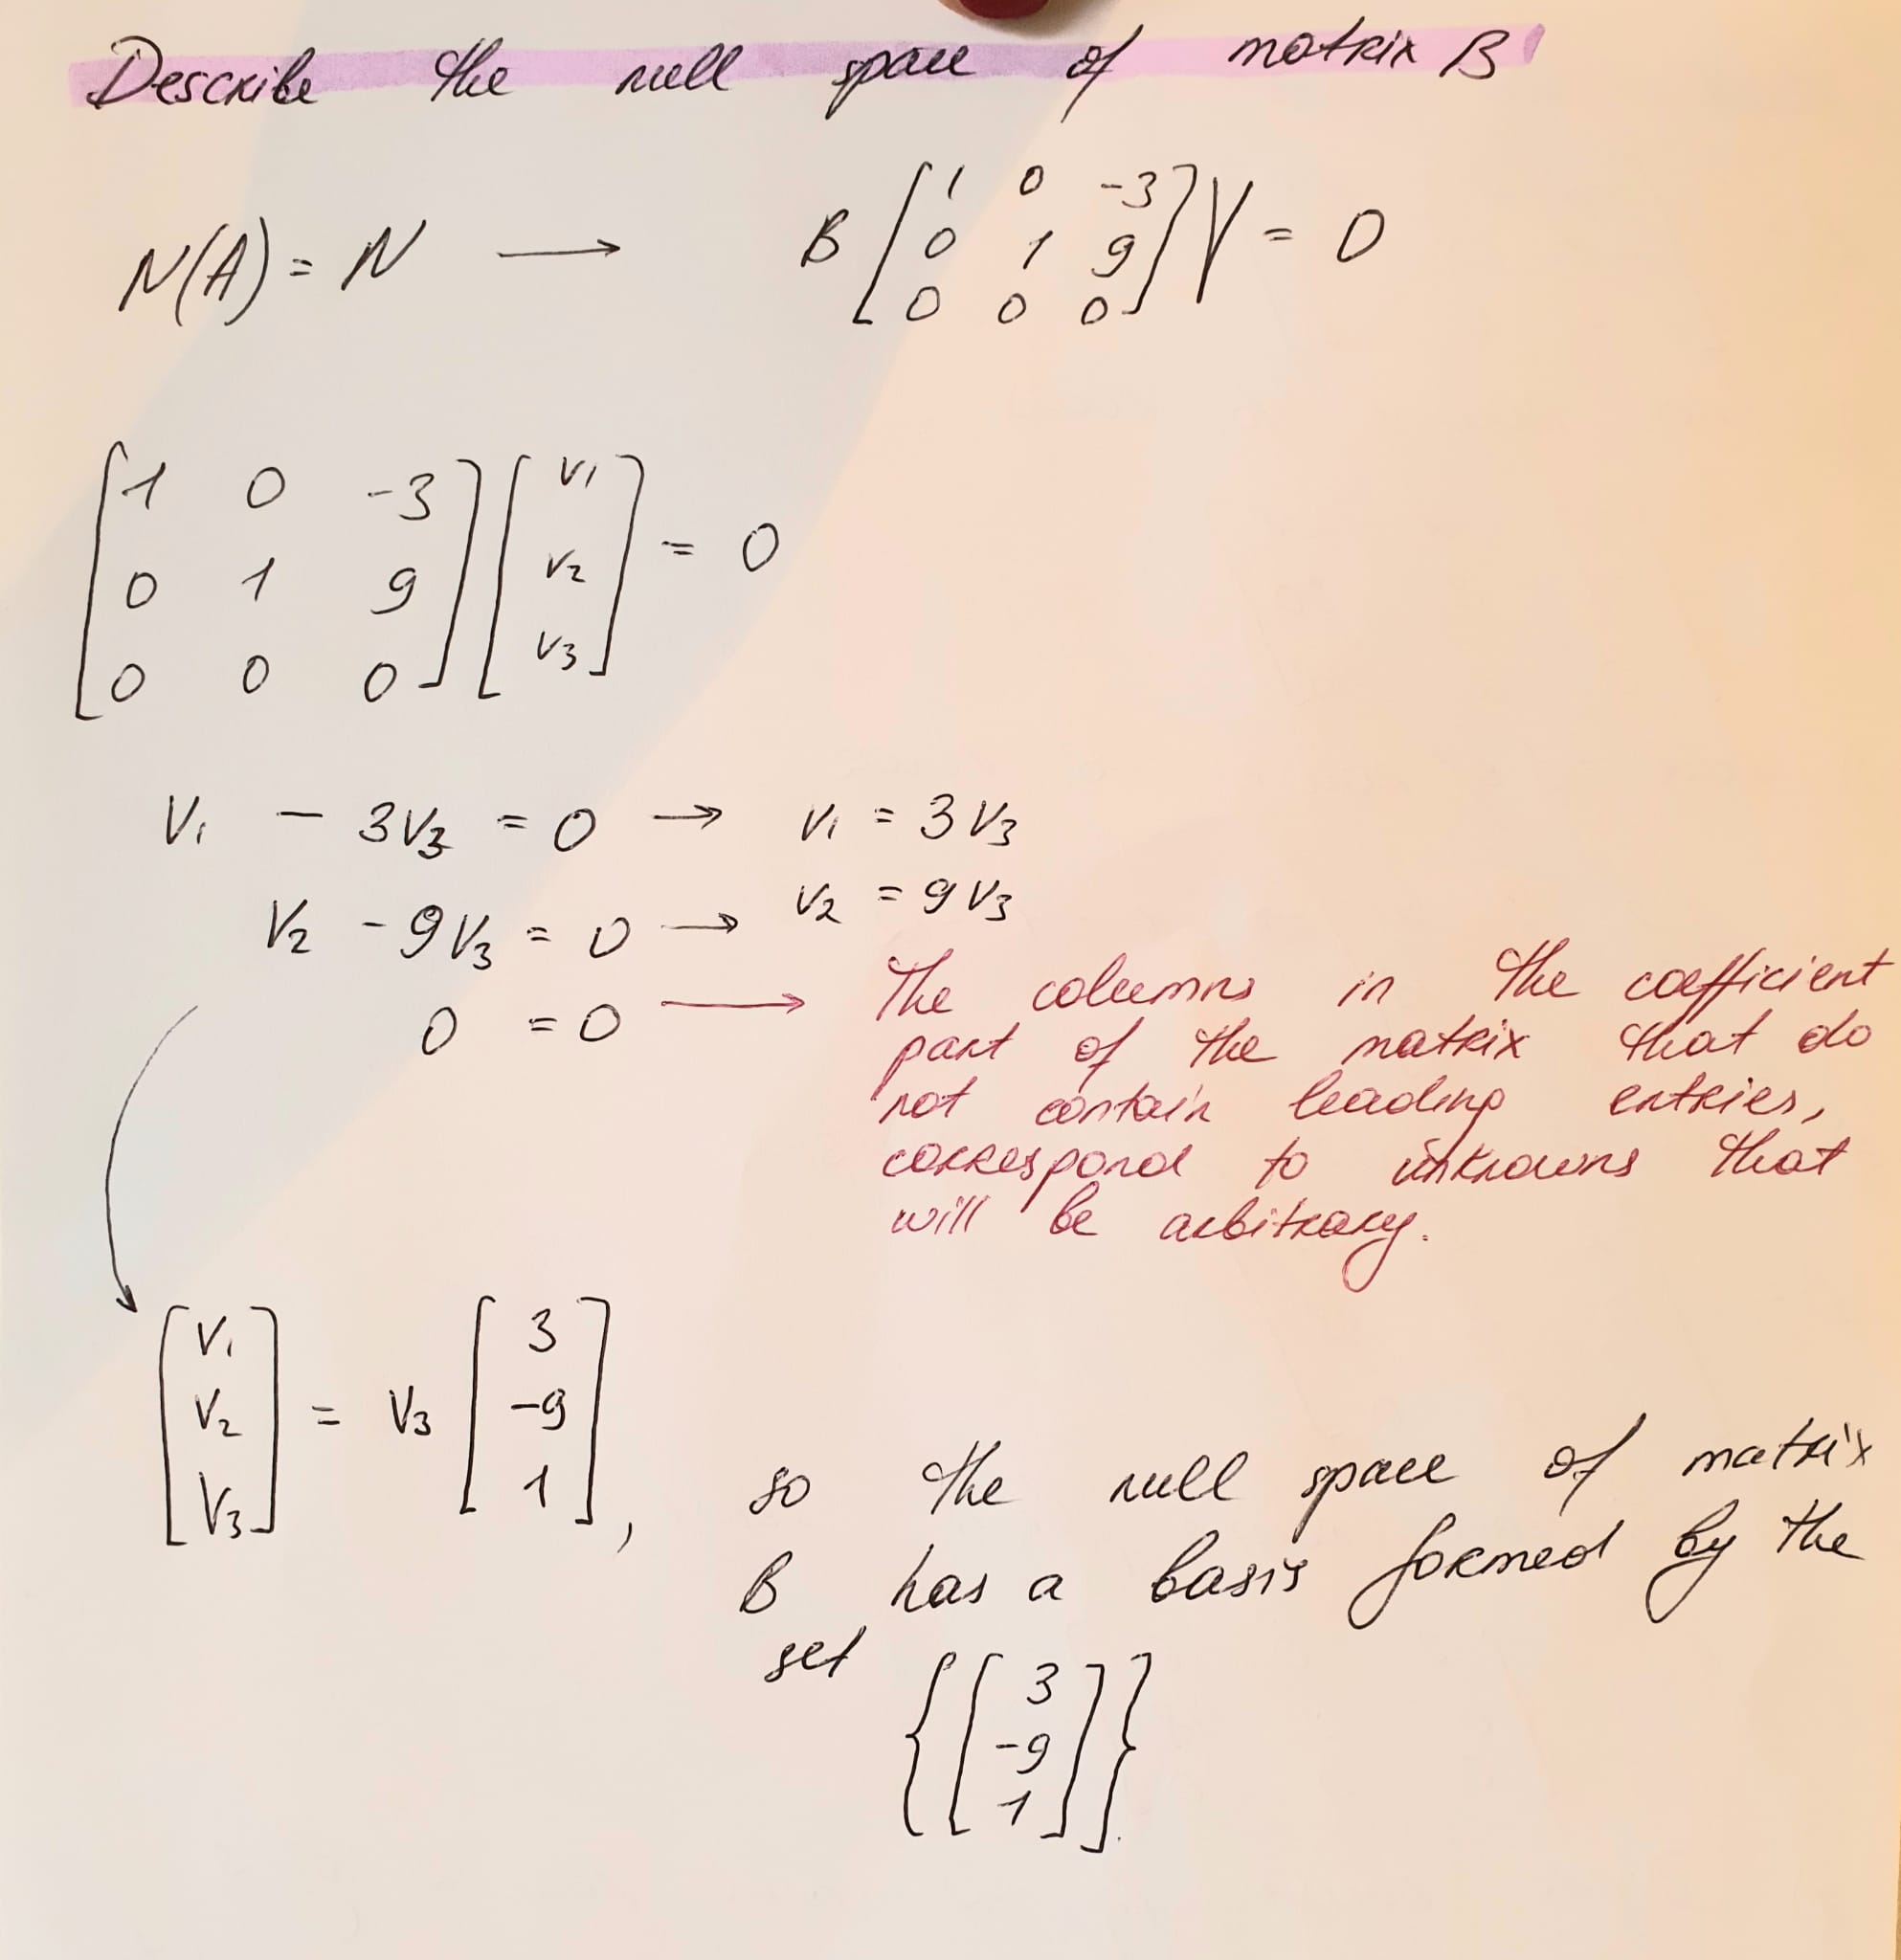 Describe the null space of matrix B
N(A) = N → B [1 0 -3; 0 1 9; 0 0 0] V = 0
[1 0 -3] [v1]
[0 1 9] [v2] = 0
[0 0 0] [v3]
V1 - 3V3 = 0 → v1 = 3V3
V2 - 9V3 = 0 → v2 = 9V3
0 = 0 → The columns in the coefficient
part of the matrix that do
not contain leading entries,
correspond to unknowns that
will be arbitrary.
[V1] [3]
[V2] = V3 [-9]
[V3] [1] ,
so the null space of matrix
B has a basis formed by the
set
{[3; -9; 1]}.